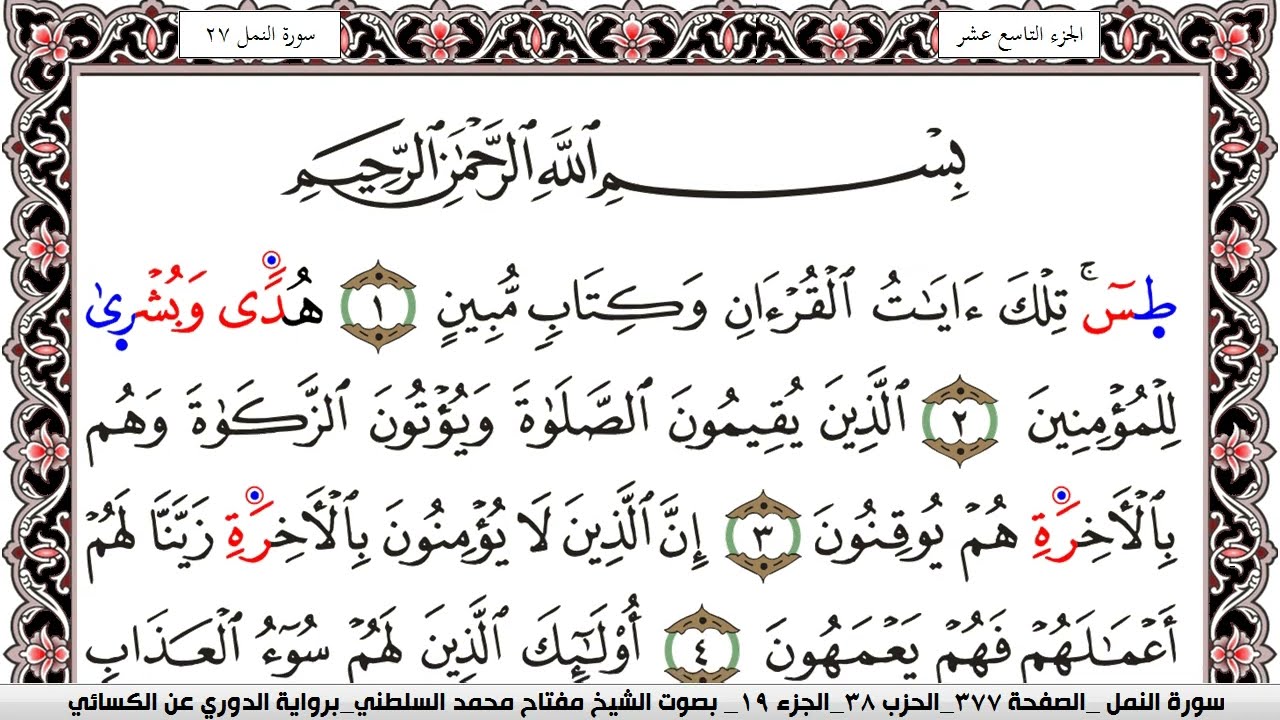 الجزء التاسع عشر
سورة النمل ٢٧
بِسْمِ ٱللَّهِ ٱلرَّحْمَٰنِ ٱلرَّحِيمِ
طِسٓۚ تِلْكَ ءَايَٰتُ ٱلْقُرْءَانِ وَكِتَابٍ مُّبِينٍ ١ هُدًى وَبُشْرِىٰ
لِلْمُؤْمِنِينَ ٢ ٱلَّذِينَ يُقِيمُونَ ٱلصَّلَوٰةَ وَيُؤْتُونَ ٱلزَّكَوٰةَ وَهُم
بِٱلْأَخِرَةِ هُمْ يُوقِنُونَ ٣ إِنَّ ٱلَّذِينَ لَا يُؤْمِنُونَ بِٱلْأَخِرَةِ زَيَّنَّا لَهُمْ
أَعْمَٰلَهُمْ فَهُمْ يَعْمَهُونَ ٤ أُوْلَٰٓئِكَ ٱلَّذِينَ لَهُمْ سُوٓءُ ٱلْعَذَابِ
سورة النمل _الصفحة ٣٧٧_الحزب ٣٨_الجزء ١٩_ بصوت الشيخ مفتاح محمد السلطني_برواية الدوري عن الكسائي